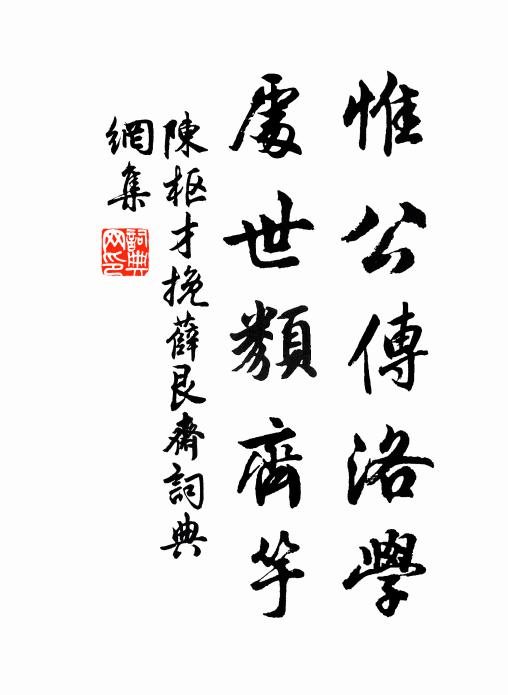 惟公傳洛學
處世類齊竽
陳枢才挽薛艮齋詞典
網集
詞典网印